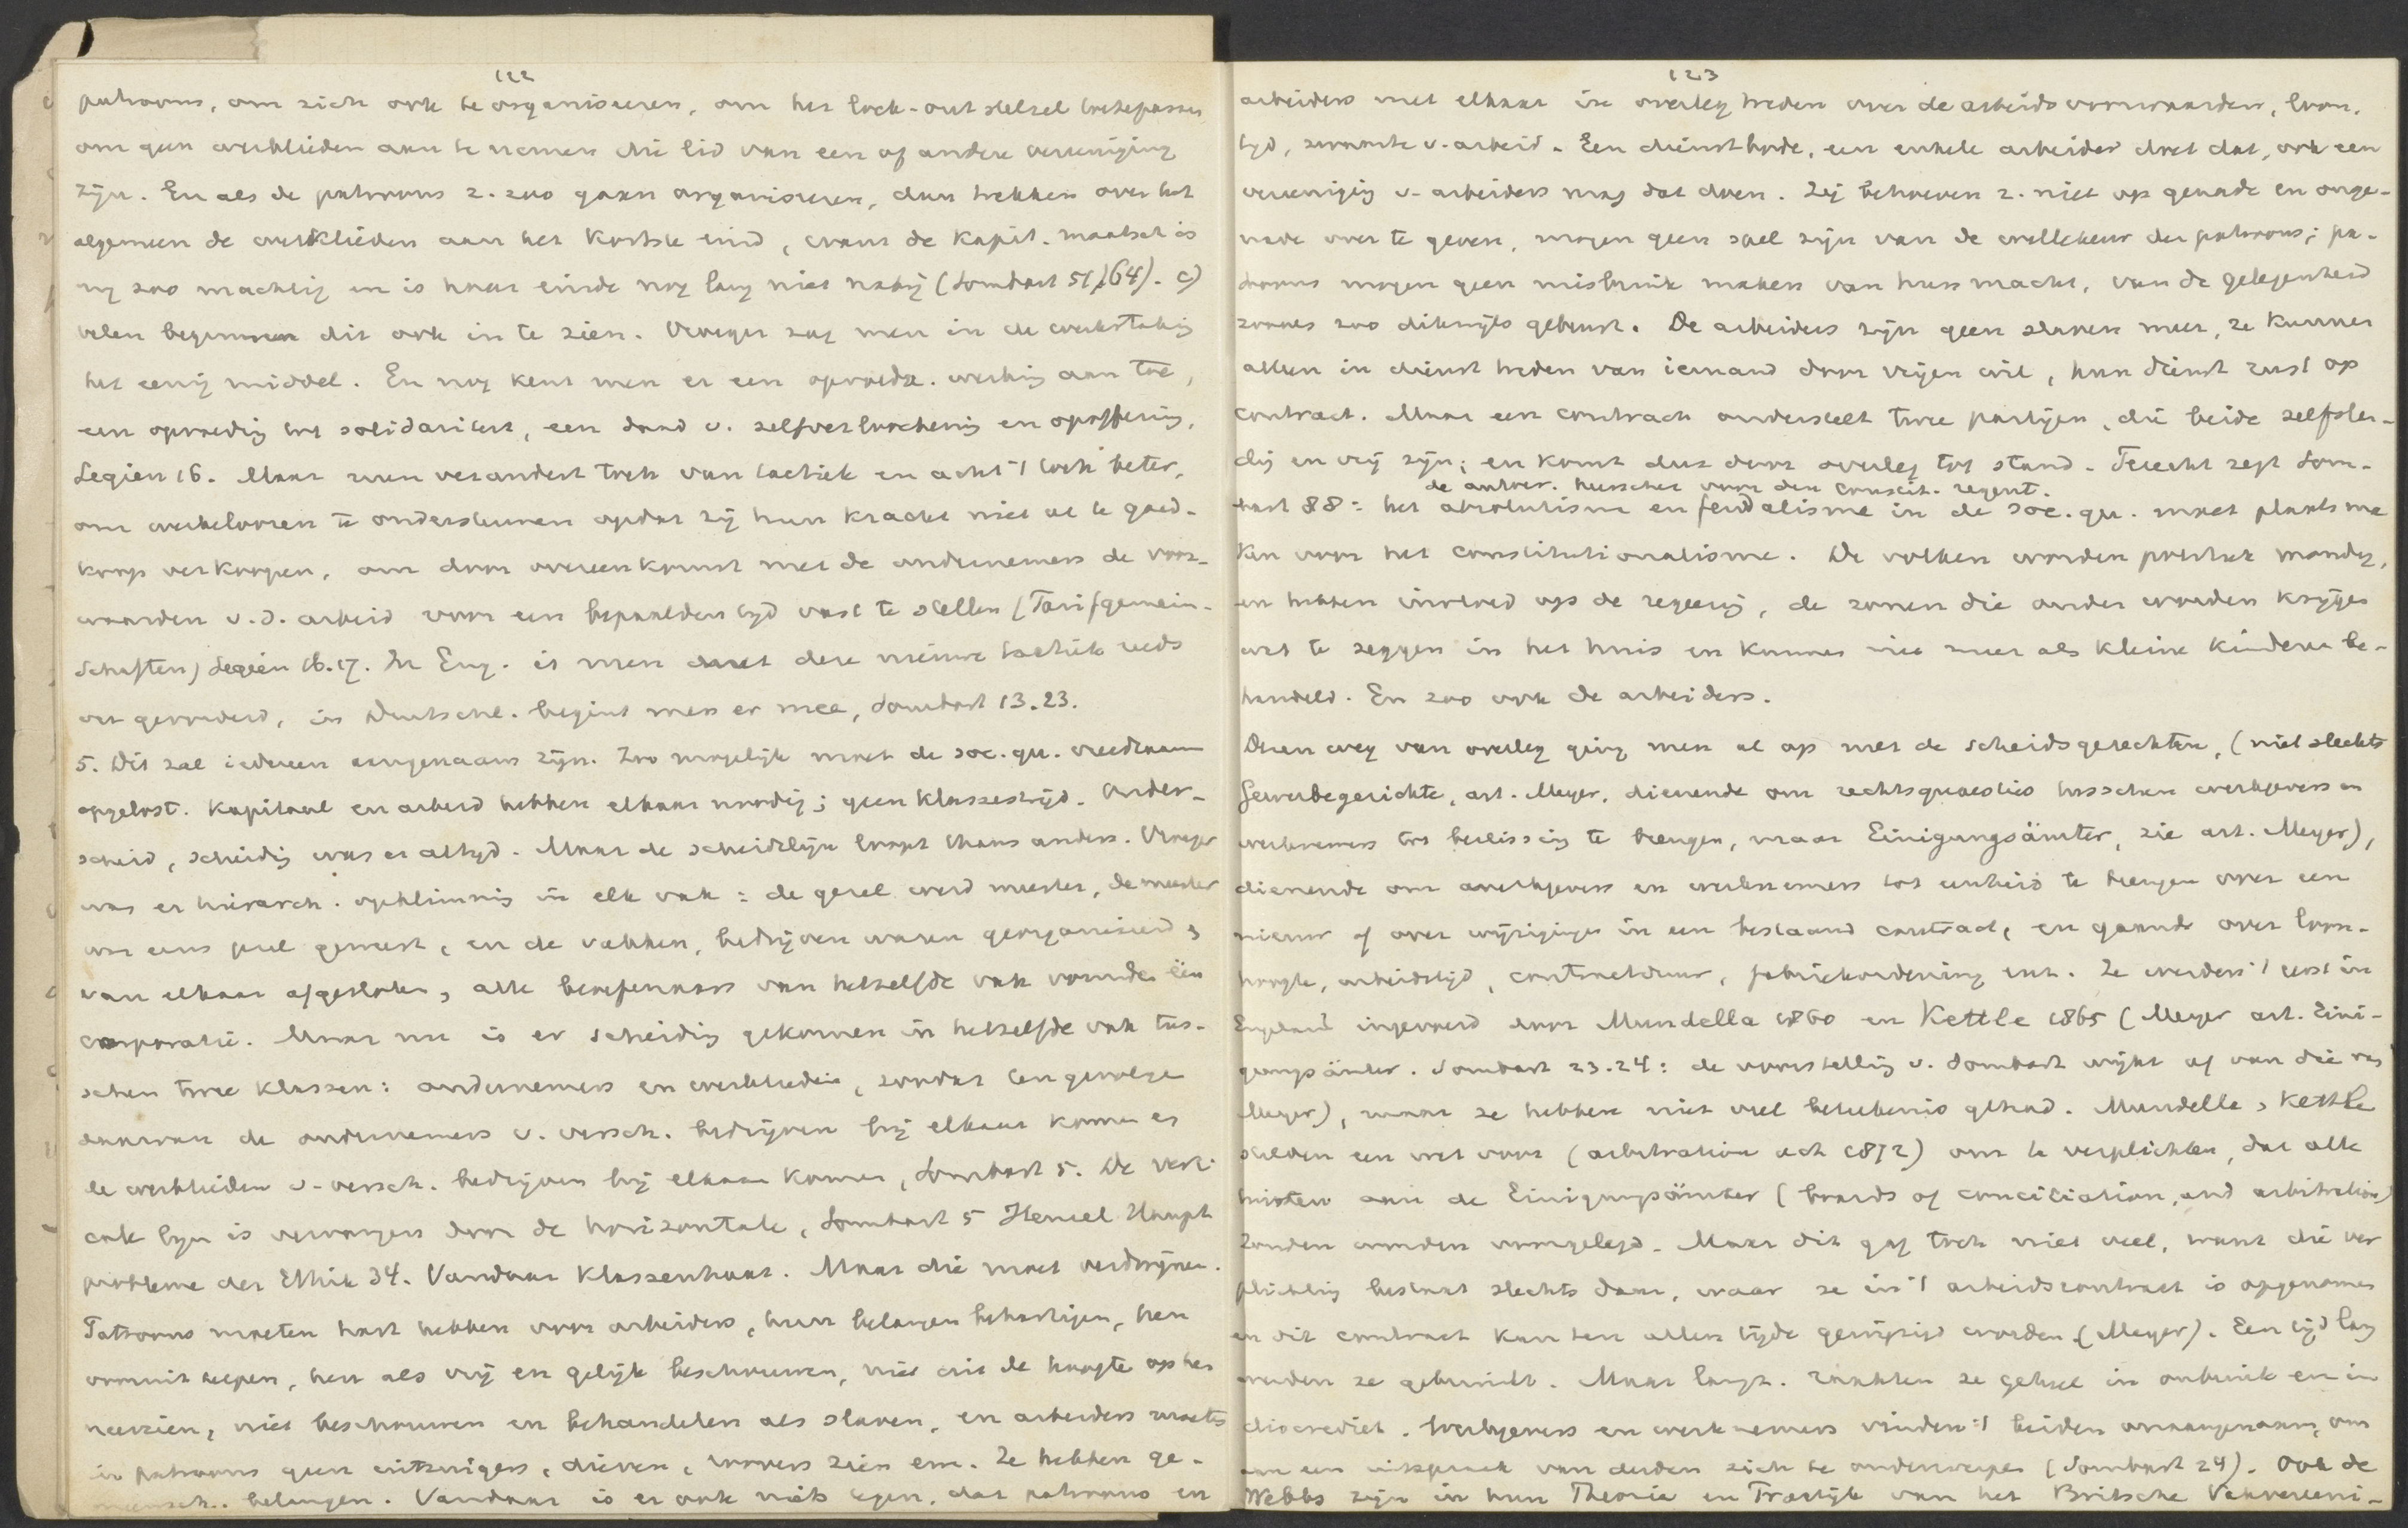 122
patroons, om zich ook te organiseeren, om het lock-out stelsel toetepassen
om geen werklieden aan te nemen die lid van een of andere vereeniging
zijn. En als de patroons z. zoo gaan organiseeren, dan trekken over het
algemeen de werklieden aan het kortste eind, want de kapit. maatsch. is
nog zoo machtig en is haar einde nog lang niet nabij (Sombart 51/64). c)
velen beginnen dit ook in te zien. Vroeger zag men in de werkstaking
het eenig middel. En nog kent men er een opvoedk. werking aan toe,
een opvoeding tot solidariteit, een daad v. zelfverloochening en opoffering,
Legien 16. Maar men verandert toch van tactiek en acht 't toch beter,
om werkeloozen te ondersteunen opdat zij hun kracht niet al te goed-
koop verkoopen, om door overeenkomst met de ondernemers de voor-
waarden v.d. arbeid voor een bepaalden tijd vast te stellen (Tarifgemein-
schaften) Legien 16.17. In Eng. is men met deze nieuwe tactiek reeds
ver gevorderd, in Duitschl. begint men er mee, Sombart 13.23.
5. Dit zal iedereen aangenaam zijn. Zoo mogelijk moet de soc. qu. vreedzaam
opgelost. Kapitaal en arbeid hebben elkaar noodig; geen klassestrijd. Onder-
scheid, scheiding was er altijd. Maar de scheidslijn loopt thans anders. Vroeger
was er hierarch. opklimming in elk vak: de gezel werd meester, de meester
was eens gezel geweest, en de vakken, bedrijven waren georganiseerd,
van elkaar afgesloten, alle beoefenaars van hetzelfde vak vormden één
corporatie. Maar nu is er scheiding gekomen in hetzelfde vak tus-
schen twee klassen: ondernemers en werklieden, zoodat tengevolge
daarvan de ondernemers v. versch. bedrijven bij elkaar komen en
de werklieden v. versch. bedrijven bij elkaar komen, Sombart 5. De verti-
cale lijn is vervangen door de horizontale, Sombart 5 Hensel Haupt-
probleme der Ethik 34. Vandaar klassenhaat. Maar die moet verdwijnen.
Patroons moeten hart hebben voor arbeiders, hun belangen behartigen, hen
vooruit helpen, hen als vrij en gelijk beschouwen, niet uit de hoogte op hen
neerzien, niet beschouwen en behandelen als slaven, en arbeiders moeten
in patroons geen uitzuigers, dieven, roovers zien enz. Ze hebben ge-
meensch. belangen. Vandaar is er ook niets tegen, dat patroons en
123
arbeiders met elkaar in overleg treden over de arbeidsvoorwaarden, loon,
tijd, zwaarte v. arbeid. Een dienstbode, een enkele arbeider doet dat, ook een
vereeniging v. arbeiders mag dat doen. Zij behoeven z. niet op genade en onge-
nade over te geven, mogen geen spel zijn van de willekeur der patroons; pa-
troons mogen geen misbruik maken van hun macht, van de gelegenheid
zooals zoo dikwijls gebeurt. De arbeiders zijn geen slaven meer, ze kunnen
alleen in dienst treden van iemand door vrijen wil, hun dienst rust op
contract. Maar een contract onderstelt twee partijen, die beide zelfstan-
dig en vrij zijn; en komt dus door overleg tot stand. Terecht zegt Som-
de autocr. heerscher voor den constit. regent.
bart 88: het absolutisme en feudalisme in de soc. qu. moet plaats ma-
ken voor het constitutionalisme. De volken worden politiek mondig,
en hebben invloed op de regeering, de zonen die ouder worden krijgen
wat te zeggen in het huis en kunnen niet meer als kleine kinderen be-
handeld. En zoo ook de arbeiders.
Dien weg van overleg ging men al op met de scheidsgerechten, (niet slechts
Gewerbegerichte, art. Meyer, dienende om rechtsquaesties tusschen werkgevers en
werknemers tot beslissing te brengen, maar Einigungsämter, zie art. Meyer),
dienende om werkgevers en werknemers tot eenheid te brengen over een
nieuw of over wijziging in een bestaand contract, en gaande over loon-
hoogte, arbeidstijd, contractduur, fabriekordening enz. Ze werden 't eerst in
Engeland ingevoerd door Mundella 1860 en Kettle 1865 (Meyer art. Eini-
gungsämter. Sombart 23.24: de voorstelling v. Sombart wijkt af van die van
Meyer), maar ze hebben niet veel beteekenis gehad. Mundella, Kettle
stelden een wet voor (arbitration act 1872) om te verplichten, dat alle
twisten aan de Einigungsämter (boards of conciliation, and arbitration)
zouden worden voorgelegd. Maar dit gaf toch niet veel, want die ver-
plichting bestaat slechts daar, waar ze in 't arbeidscontract is opgenomen
en dit contract kan ten allen tijde gewijzigd worden (Meyer). Een tijd lang
werden ze gebruikt. Maar langz. raakten ze geheel in onbruik en in
discrediet. Werkgevers en werknemers vinden 't beiden onaangenaam, om
aan een uitspraak van derden zich te onderwerpen (Sombart 24). Ook de
Webbs zijn in hun Theorie en Practijk van het Britsche Vakvereeni-